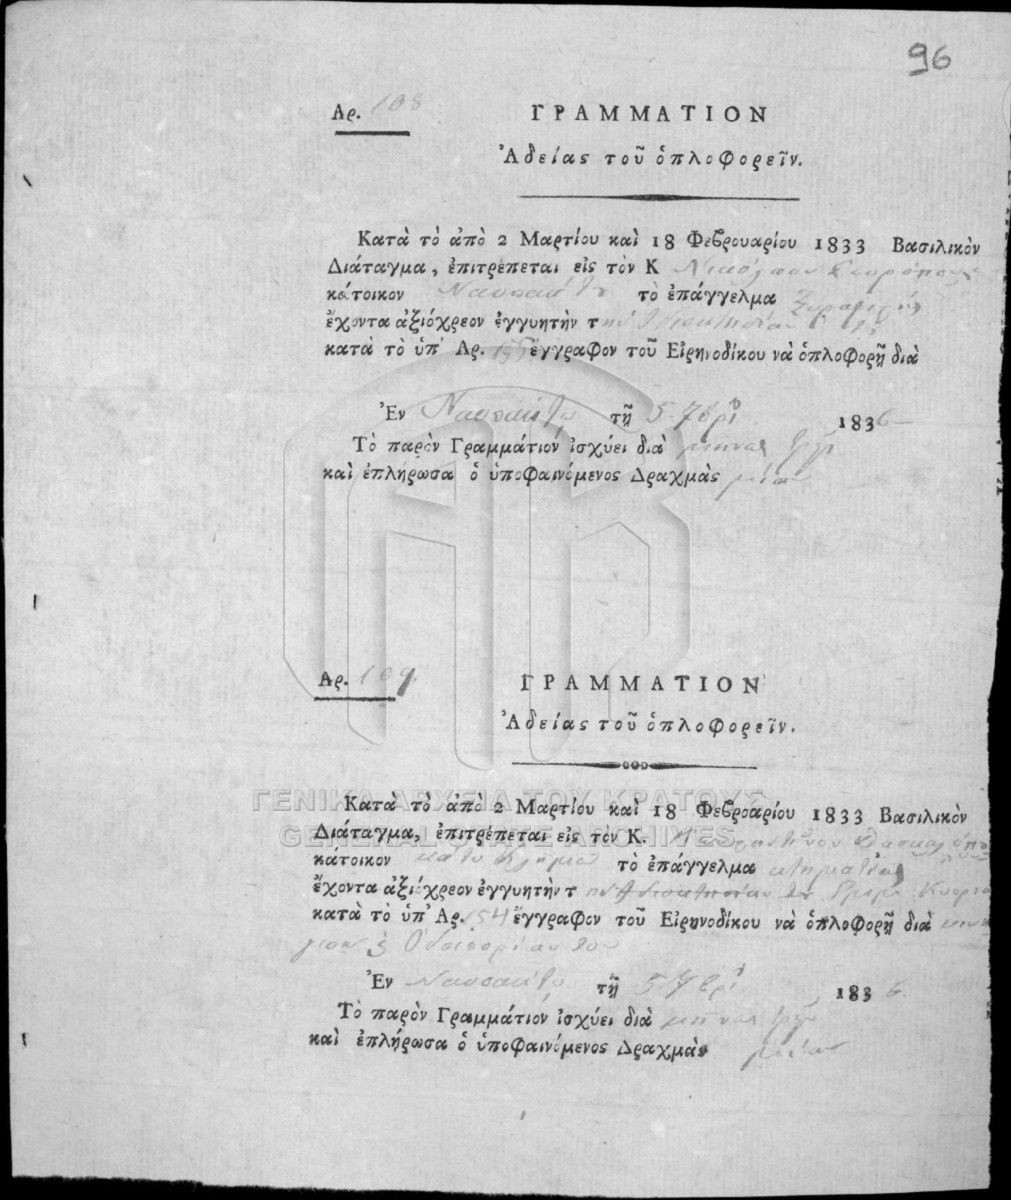 96
Αρ. 108
ΓΡΑΜΜΑΤΙΟΝ
Ἀδείας τοῦ ὁπλοφορεῖν.
Κατὰ τὸ ἀπὸ 2 Μαρτίου καὶ 18 Φεβρουαρίου 1833 Βασιλικὸν
Διάταγμα, ἐπιτρέπεται εἰς τὸν Κ
κάτοικον Ναυπάκτου τὸ ἐπάγγελμα
ἔχοντα ἀξιόχρεον ἐγγυητὴν τ
κατὰ τὸ ὑπ' Αρ. ἔγγραφον τοῦ Εἰρηνοδίκου νὰ ὁπλοφορῇ διὰ
Ἐν Ναυπάκτῳ τῇ 5 7βρίου 1836
Τὸ παρὸν Γραμμάτιον ἰσχύει διὰ μῆνας
καὶ ἐπλήρωσα ὁ ὑποφαινόμενος Δραχμὰς μίαν
Αρ. 109
ΓΡΑΜΜΑΤΙΟΝ
Ἀδείας τοῦ ὁπλοφορεῖν.
ΓΕΝΙΚΑ ΑΡΧΕΙΑ ΤΟΥ ΚΡΑΤΟΥΣ
Κατὰ τὸ ἀπὸ 2 Μαρτίου καὶ 18 Φεβροαρίου 1833 Βασιλικὸν
GENERAL STATE ARCHIVES
Διάταγμα, ἐπιτρέπεται εἰς τὸν Κ.
κάτοικον τὸ ἐπάγγελμα κτηματίας
ἔχοντα ἀξιόχρεον ἐγγυητὴν τ
κατὰ τὸ ὑπ' Αρ. 154 ἔγγραφον τοῦ Εἰρηνοδίκου νὰ ὁπλοφορῇ διὰ
Ἐν Ναυπάκτῳ τῇ 5 7βρίου 1836
Τὸ παρὸν Γραμμάτιον ἰσχύει διὰ μῆνας
καὶ ἐπλήρωσα ὁ ὑποφαινόμενος Δραχμὰς μίαν